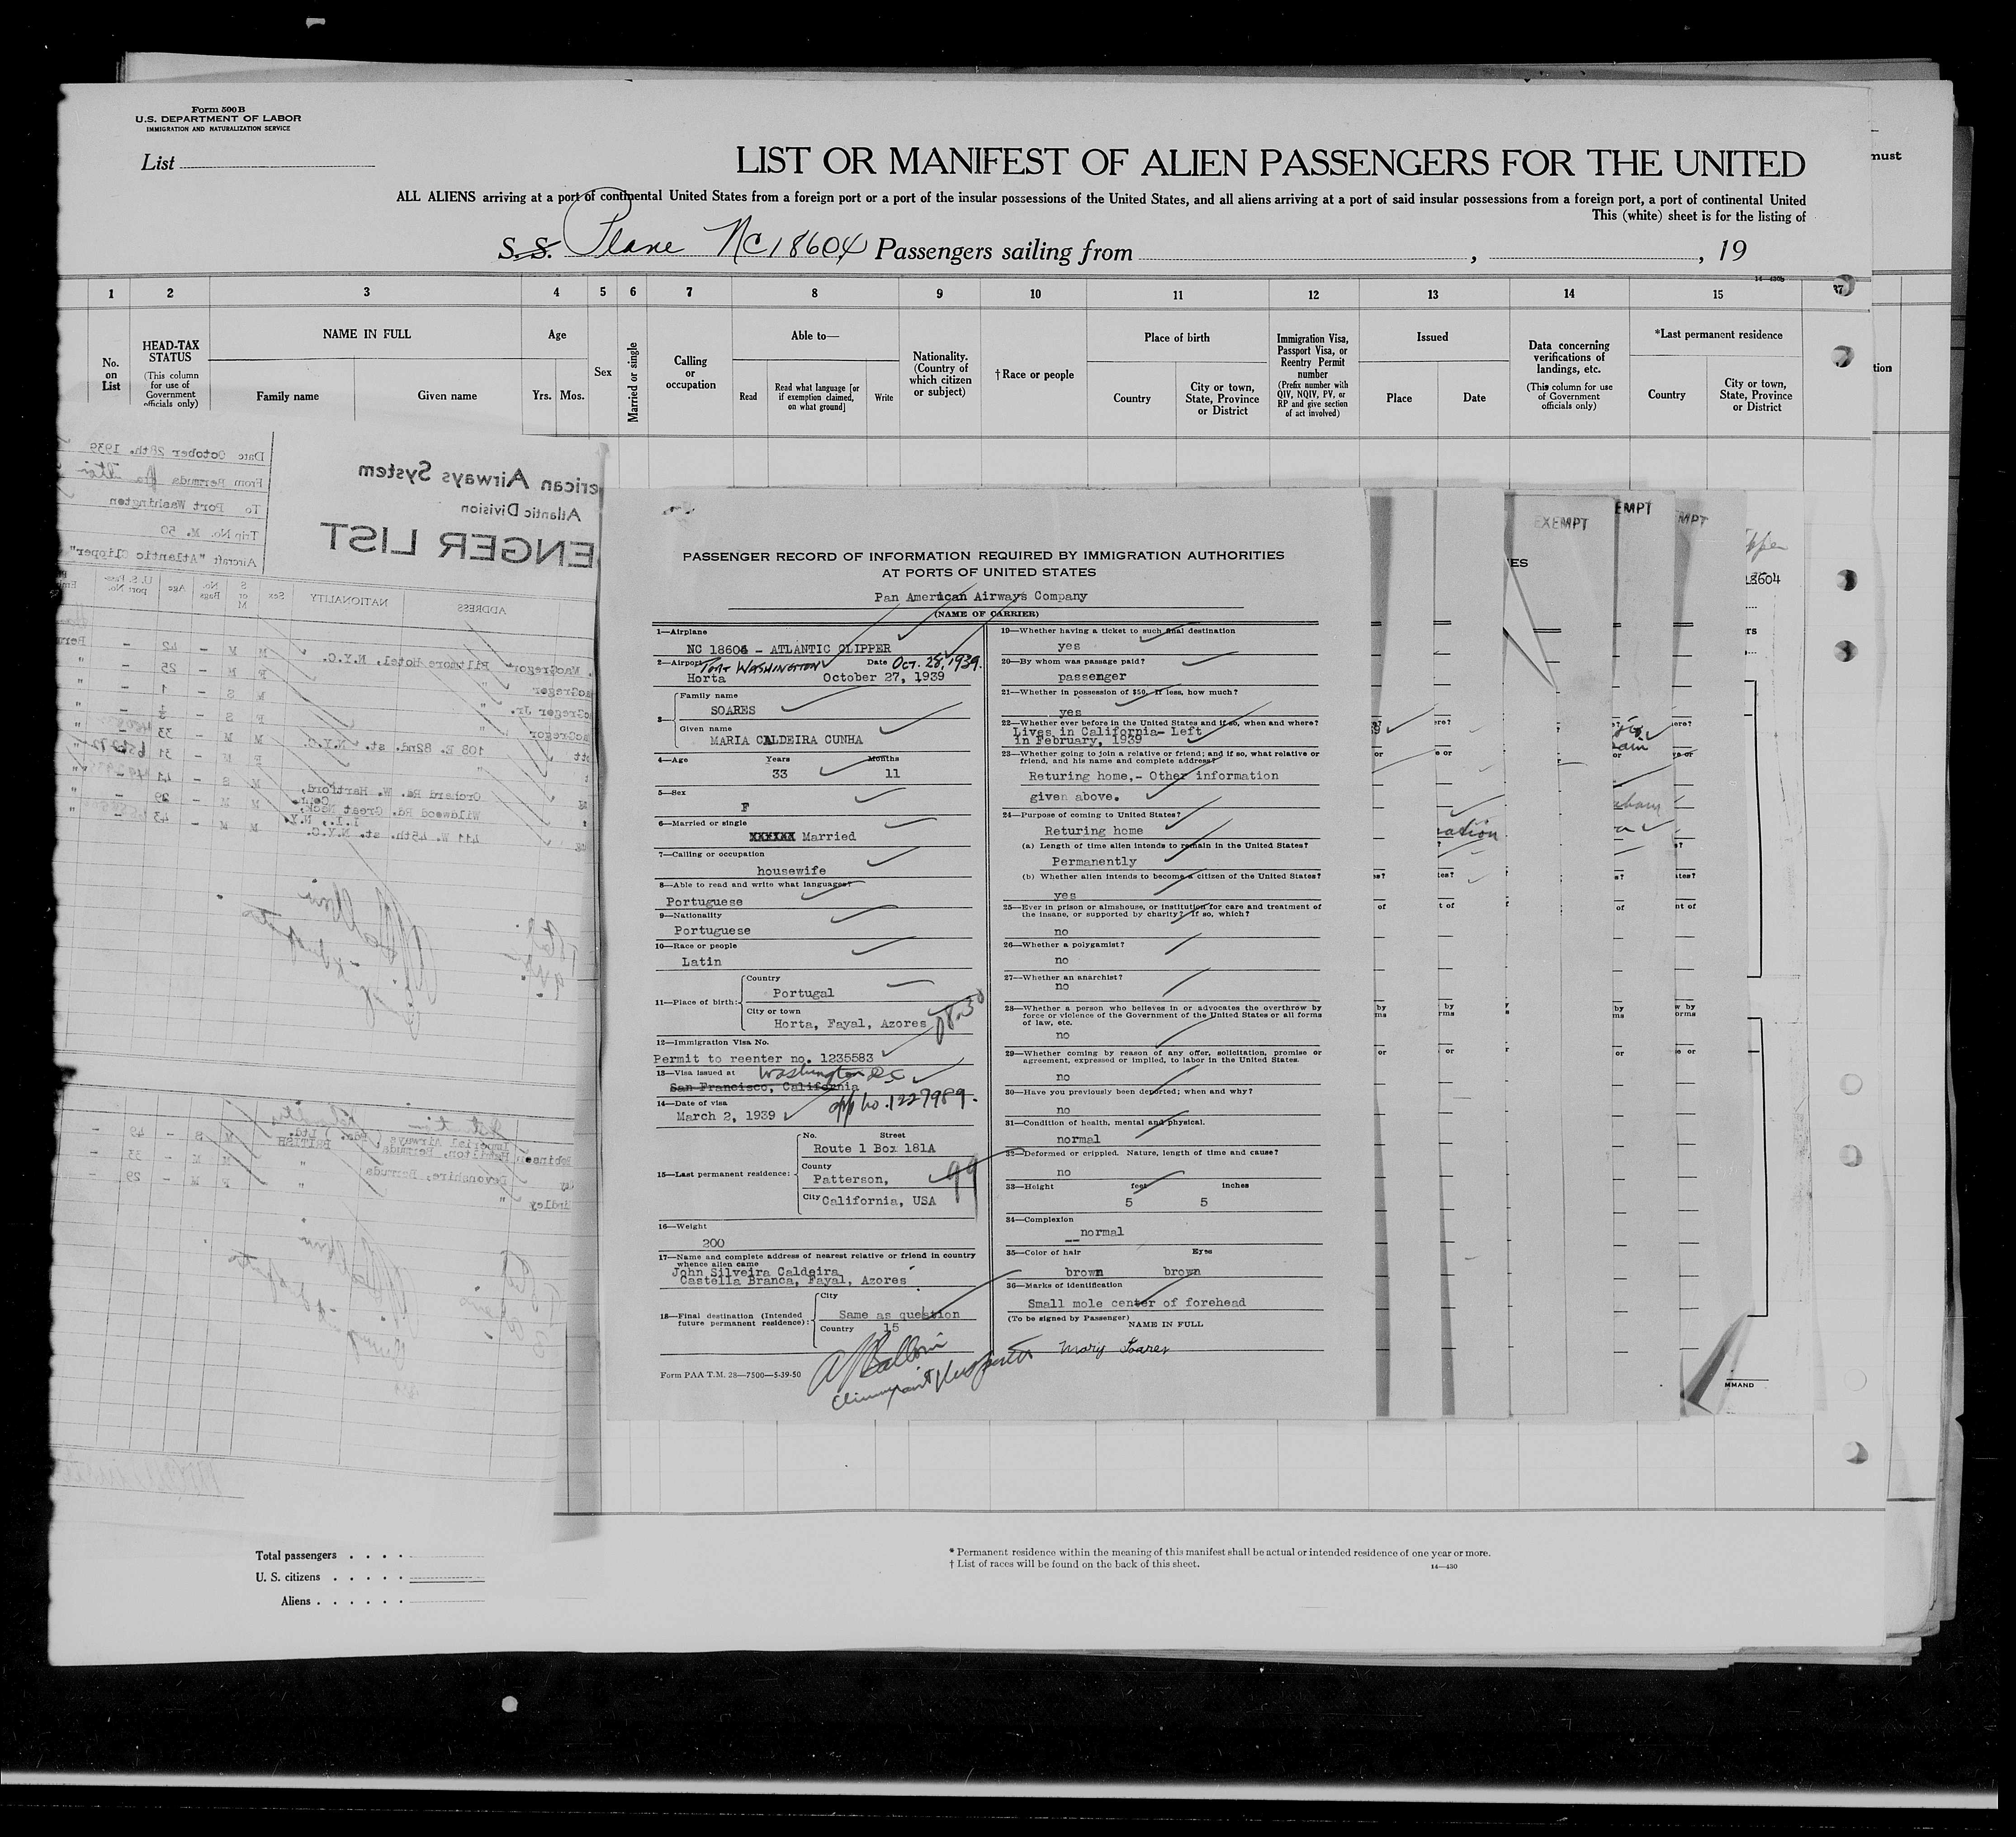 Form 500 B
U.S. DEPARTMENT OF LABOR
IMMIGRATION AND NATURALIZATION SERVICE
List
LIST OR MANIFEST OF ALIEN PASSENGERS FOR THE UNITED
must
ALL ALIENS arriving at a port of continental United States from a foreign port or a port of the insular possessions of the United States, and all aliens arriving at a port of said insular possessions from a foreign port, a port of continental United
This (white) sheet is for the listing of
S.S. Plane NC18604 Passengers sailing from , , 19
14—430b
1 2 3 4 5 6 7 8 9 10 11 12 13 14 15
No. on List
HEAD-TAX STATUS
(This column for use of Government officials only)
NAME IN FULL
Family name
Given name
Age
Yrs. Mos.
Sex
Married or single
Calling or occupation
Able to—
Read
Read what language [or if exemption claimed, on what ground]
Write
Nationality. (Country of which citizen or subject)
†Race or people
Place of birth
Country
City or town, State, Province or District
Immigration Visa, Passport Visa, or Reentry Permit number
(Prefix number with QIV, NQIV, PV, or RP and give section of act involved)
Issued
Place
Date
Data concerning verifications of landings, etc.
(This column for use of Government officials only)
*Last permanent residence
Country
City or town, State, Province or District
tion
erican Airways System
Atlantic Division
ENGER LIST
Date October 28th. 1939
From Bermuda
To Port Washington
Trip No. M. 50
Aircraft "Atlantic Clipper"
ADDRESS NATIONALITY Sex S or M No. Bags Age U.S. Pass- port No.
MacGregor Biltmore Hotel, N.Y.C. M M - 42 -
cGregor " F M - 25 -
cGregor Jr. " M S - 1 -
cGregor " F S -
ott 108 E. 82nd. st. N.Y.C. M M - 33
" F M - 31
Orchard Rd. W. Hartford, Conn. M S - 41
Wildwood Rd. Great Neck, L.I., N.Y. M M - 29
411 W. 45th. st. N.Y.C. M M - 43
Imperial Airways (Bda.) Ltd.
obinson Hamilton, Bermuda BRITISH M S - 49 -
ay Devonshire, Bermuda " M M - 33 -
indley " " F M - 29 -
PASSENGER RECORD OF INFORMATION REQUIRED BY IMMIGRATION AUTHORITIES
AT PORTS OF UNITED STATES
Pan American Airways Company
(NAME OF CARRIER)
1—Airplane
NC 18604 - ATLANTIC CLIPPER
2—Airport Port Washington Date Oct. 28, 1939.
Horta October 27, 1939
3— Family name
SOARES
Given name
MARIA CALDEIRA CUNHA
4—Age Years Months
33 11
5—Sex
F
6—Married or single
XXXXXX Married
7—Calling or occupation
housewife
8—Able to read and write what languages?
Portuguese
9—Nationality
Portuguese
10—Race or people
Latin
11—Place of birth: Country
Portugal
City or town
Horta, Fayal, Azores
12—Immigration Visa No.
Permit to reenter no. 1235583
13—Visa issued at Washington D.C.
San Francisco, California
14—Date of visa app no. 1227989.
March 2, 1939
15—Last permanent residence: No. Street
Route 1 Box 181A
County
Patterson, 99
City California, USA
16—Weight
200
17—Name and complete address of nearest relative or friend in country whence alien came
John Silveira Caldeira
Castella Branca, Fayal, Azores
18—Final destination (Intended future permanent residence): City
Same as question
Country 15
Form PAA T.M. 28—7500—5-39-50
19—Whether having a ticket to such final destination
yes
20—By whom was passage paid?
passenger
21—Whether in possession of $50. If less, how much?
yes
22—Whether ever before in the United States and if so, when and where?
Lives in California- Left
in February, 1939
23—Whether going to join a relative or friend; and if so, what relative or friend, and his name and complete address?
Returing home,- Other information
given above.
24—Purpose of coming to United States?
Returing home
(a) Length of time alien intends to remain in the United States?
Permanently
(b) Whether alien intends to become a citizen of the United States?
yes
25—Ever in prison or almshouse, or institution for care and treatment of the insane, or supported by charity? If so, which?
no
26—Whether a polygamist?
no
27—Whether an anarchist?
no
28—Whether a person who believes in or advocates the overthrow by force or violence of the Government of the United States or all forms of law, etc.
no
29—Whether coming by reason of any offer, solicitation, promise or agreement, expressed or implied, to labor in the United States.
no
30—Have you previously been deported; when and why?
no
31—Condition of health, mental and physical.
normal
32—Deformed or crippled. Nature, length of time and cause?
no
33—Height feet inches
5 5
34—Complexion
normal
35—Color of hair Eyes
brown brown
36—Marks of identification
Small mole center of forehead
(To be signed by Passenger)
NAME IN FULL
Mary Soares
EXEMPT
EMPT
MPT
ES
18604
MMAND
Total passengers . . . .
U. S. citizens . . . . .
Aliens . . . . . .
* Permanent residence within the meaning of this manifest shall be actual or intended residence of one year or more.
† List of races will be found on the back of this sheet.
14—430